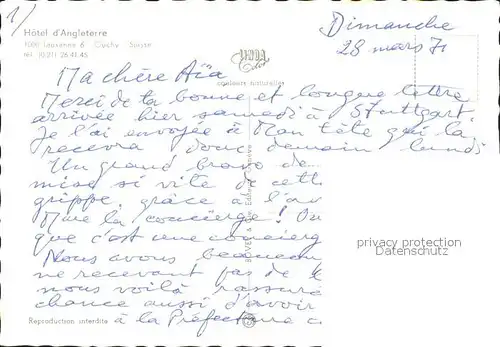 1/
Hôtel d'Angleterre
1000 Lausanne 6 Ouchy Suisse
tél. (021) 26 41 45
Dimanche
28 mars 71
couleurs naturelles
Ma chère Aïa
Merci de ta bonne et longue lettre
arrivée hier samedi à Stuttgart.
Je l'ai envoyée à Mon tête qui la
recevra donc demain lundi
Un grand bravo de
mise si vite de cett
grippe, grâce à l'av
Mme la concierge ! Ou
que c'est une concierg
Nous avons beaucou
ne recevant pas de l
nous voilà rassuré
chance aussi d'avoir
à la Préfecture c
Reproduction interdite
privacy protection
Datenschutz